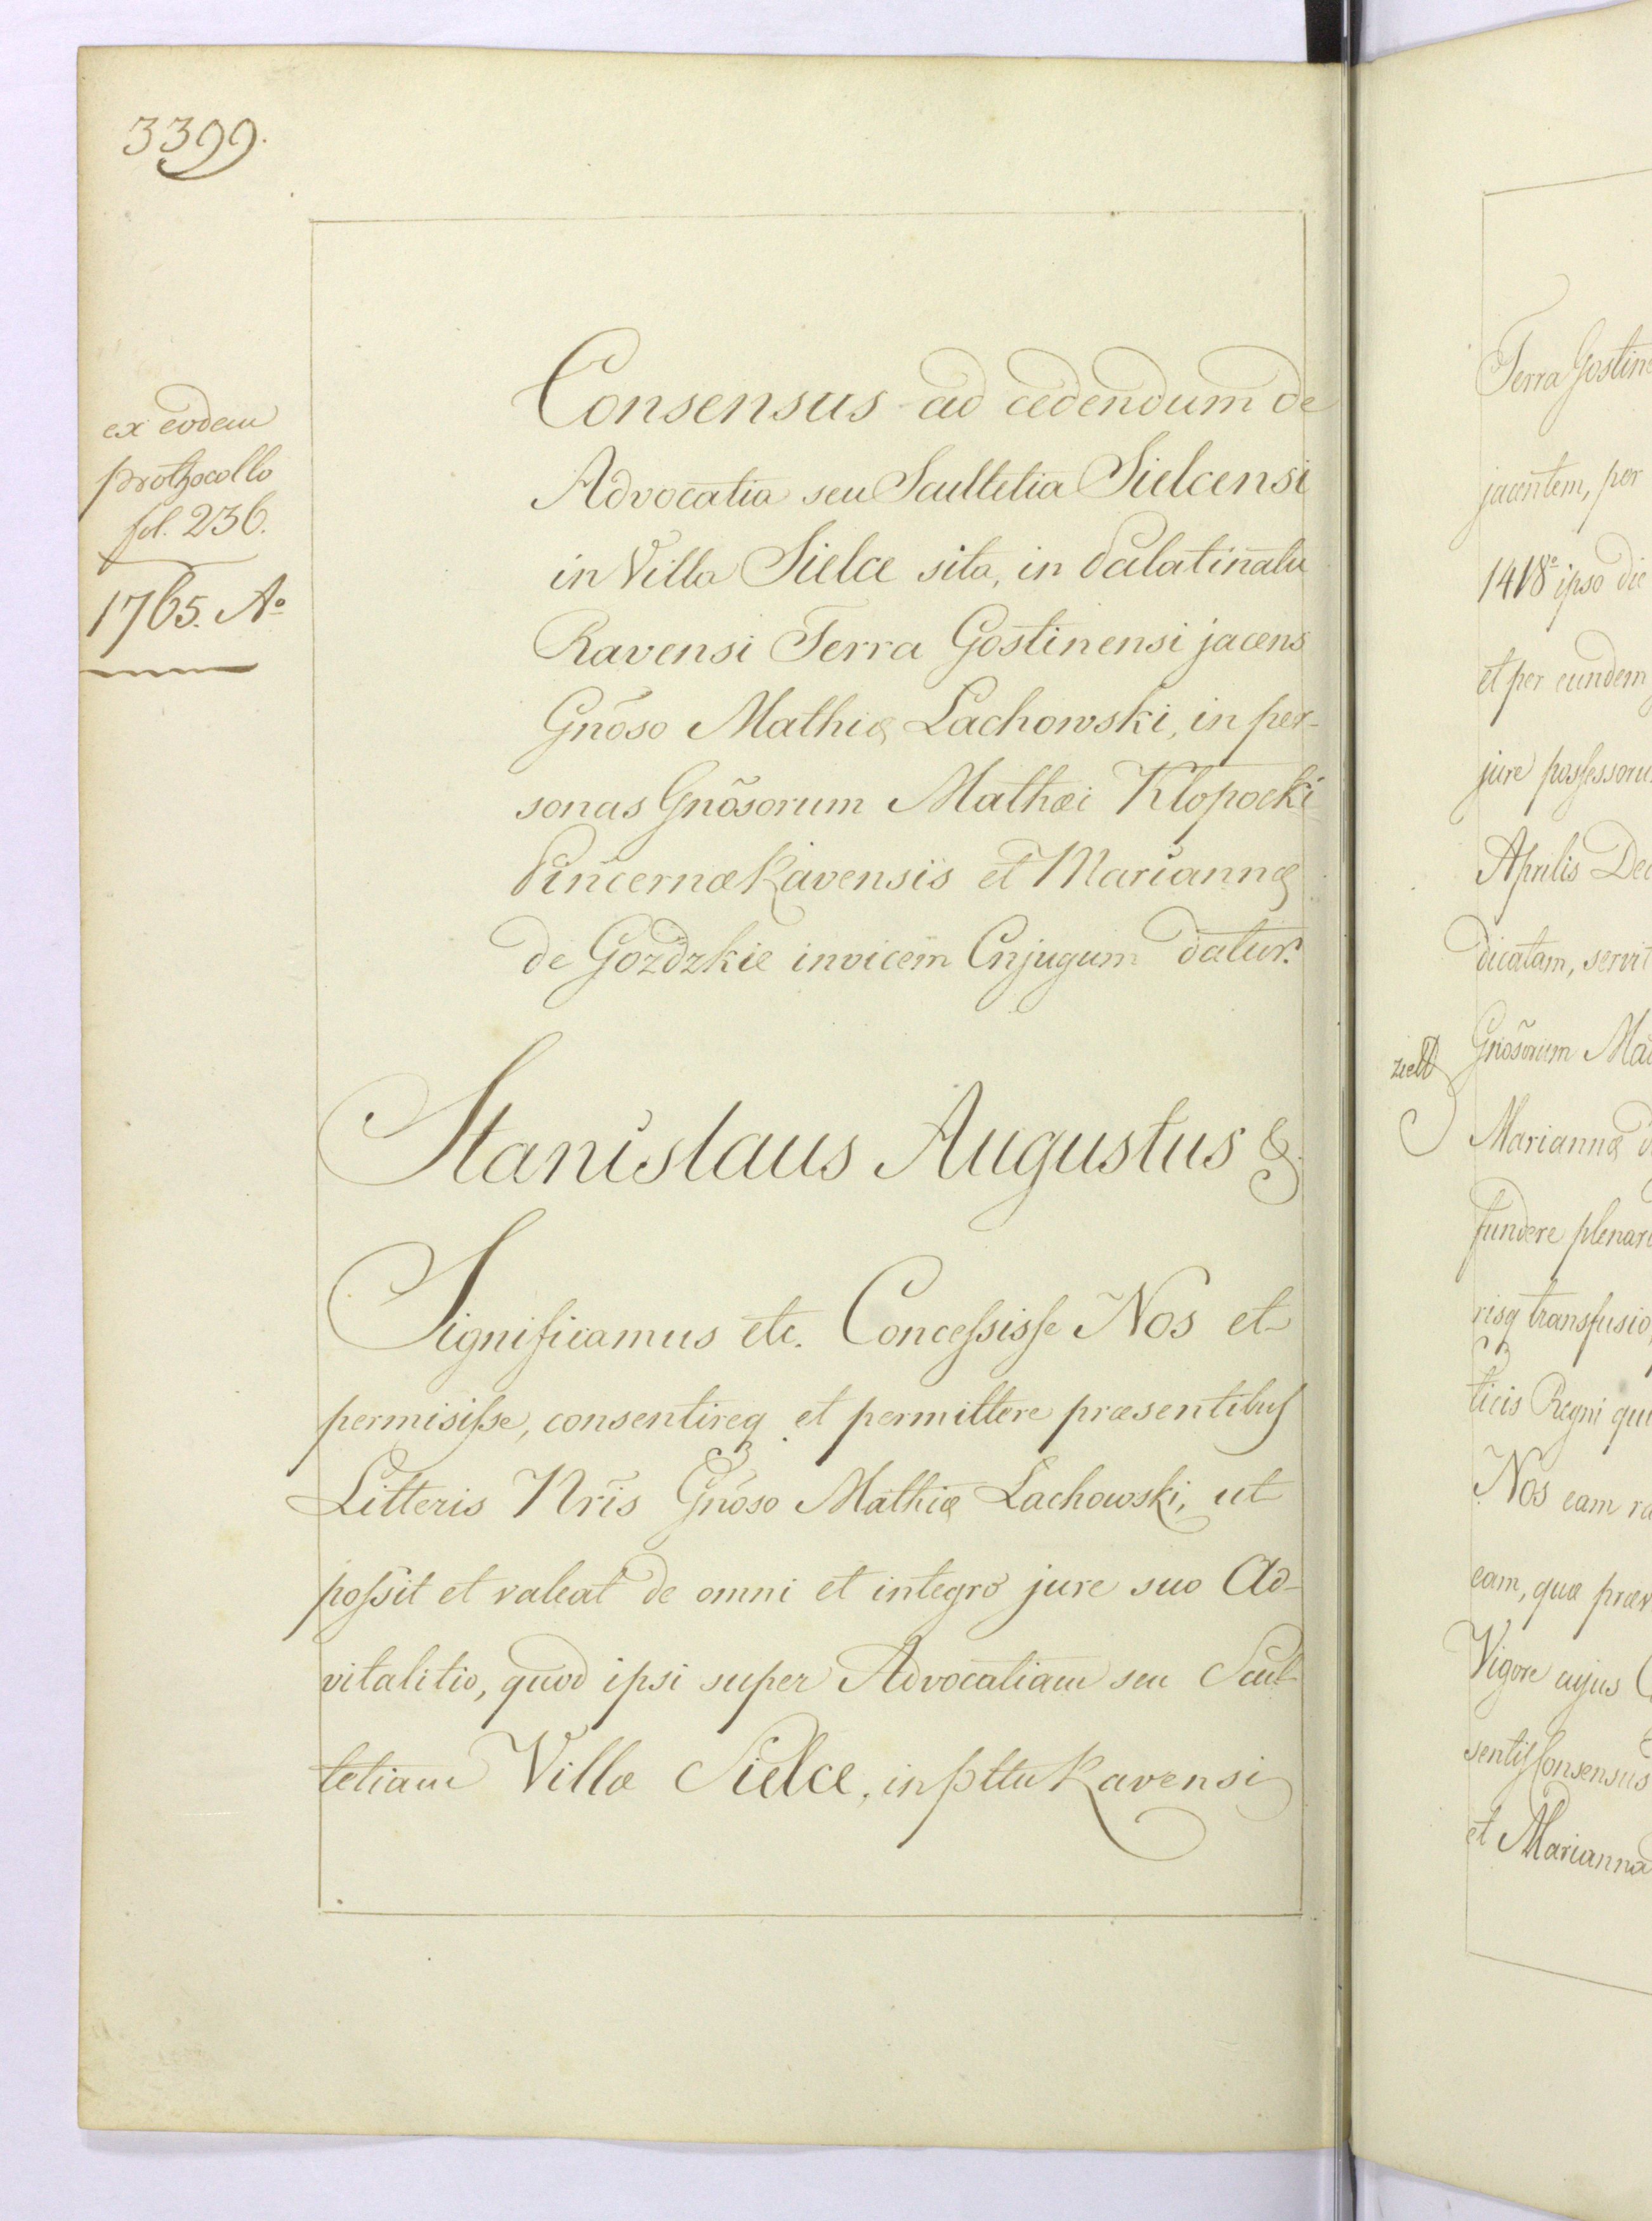 3399.
ex eodem
prothocollo
fol. 236.
1765. Aº
Consensus ad cedendum de
Advocatia seu Scultetia Sielcensi
in Villa Sielce sita, in Palatinatu
Ravensi Terra Gostinensi jacens
Gnõso Mathiæ Lachowski, in per-
sonas Gnõsorum Mathæi Klopocki
Pincernæ Ravensis et Mariannæ
de Gozdzkie invicem Cnjugum datur.
Stanislaus Augustus &.
Significamus etc. Concessisse Nos et
permisisse, consentireq et permittere præsentibus
Litteris Nris Gnõso Mathiæ Lachowski, ut
possit et valeat de omni et integro jure suo Ad-
vitalitio, quod ipsi super Advocatiam seu Scul-
tetiam Villæ Sielce, in pttu Ravensi
Terra Gostine
jacentem, per
1418º ipso die
et per eundem
jure possessoru
Aprilis Dec
dicatam, servit
Gnõsorum Ma
Mariannæ d
fundere plenar
risq transfusio
ticis Regni qui
Nos eam ra
eam, quæ præv
Vigore cujus
sentis Consensus
et Marianna